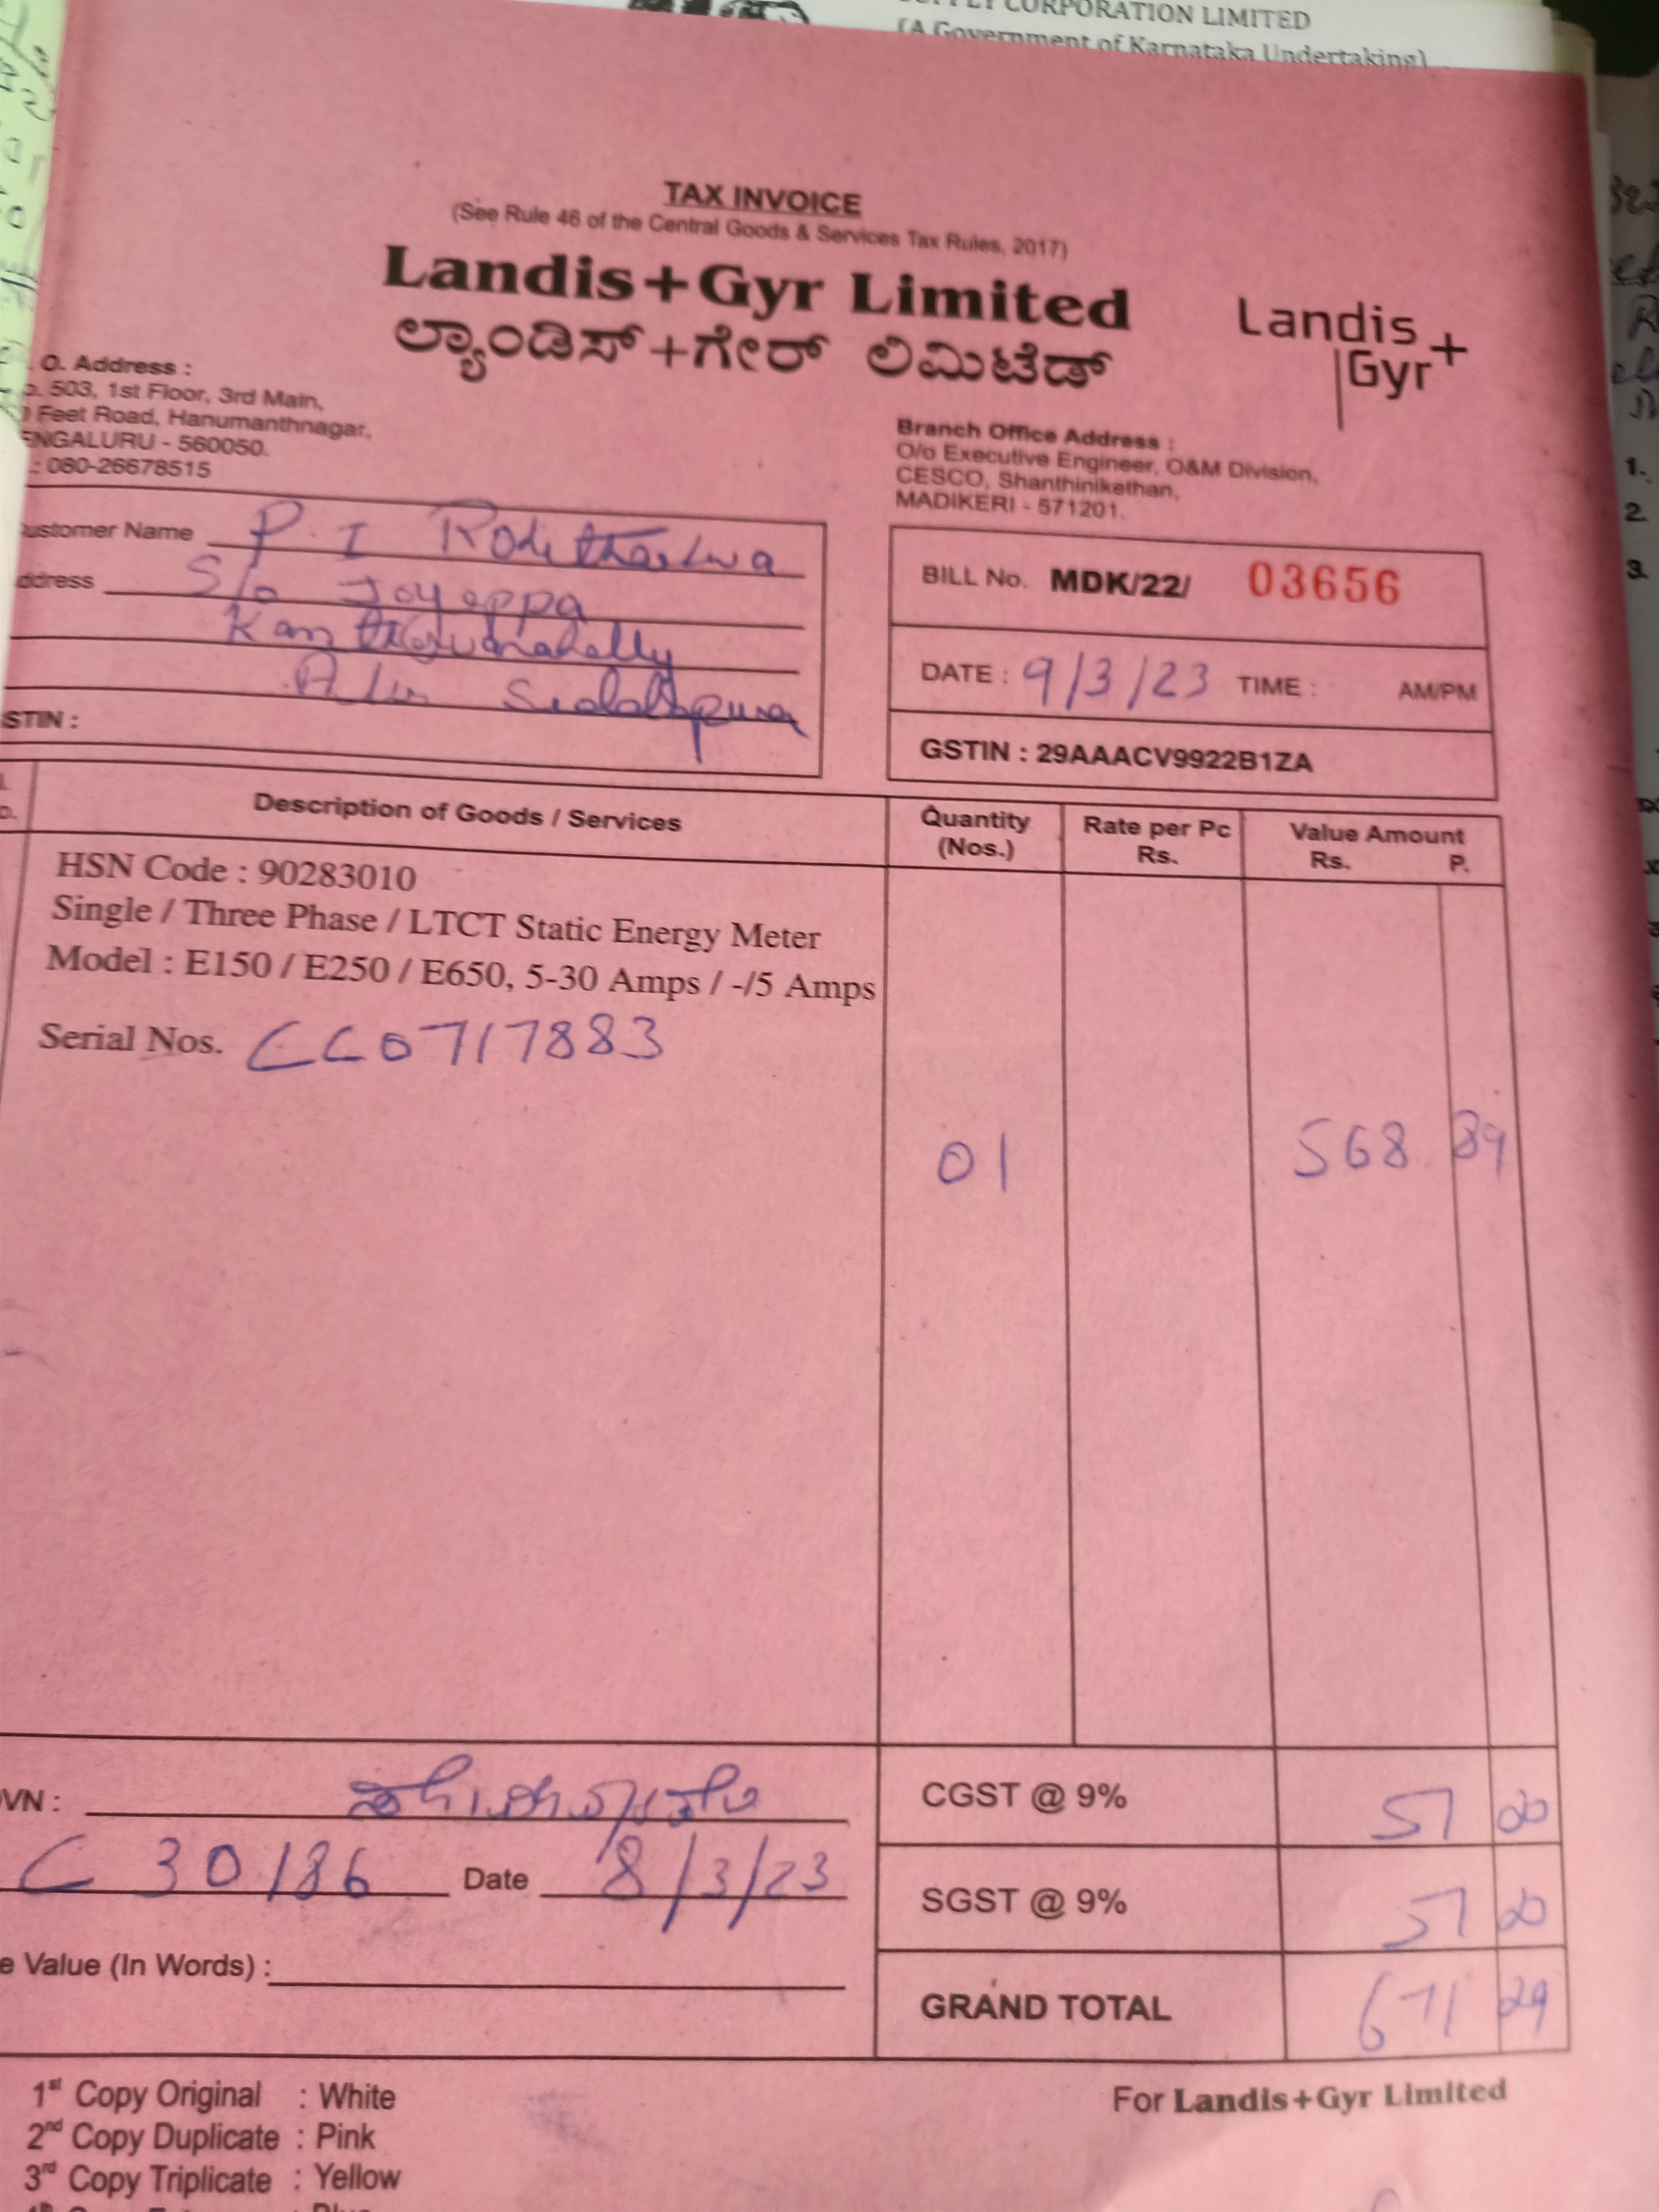 CORPORATION LIMITED
(A Government of Karnataka Undertaking)
TAX INVOICE
(See Rule 46 of the Central Goods & Services Tax Rules, 2017)
Landis+Gyr Limited
ಲ್ಯಾಂಡಿಸ್+ಗೇರ್ ಲಿಮಿಟೆಡ್
Landis
Gyr+
O. Address :
503, 1st Floor, 3rd Main,
Feet Road, Hanumanthnagar,
ENGALURU - 560050.
: 080-26678515
Branch Office Address :
O/o Executive Engineer, O&M Division,
CESCO, Shanthinikethan,
MADIKERI - 571201.
ustomer Name P. I
ddress S/o Joyappa
STIN :
BILL No. MDK/22/ 03656
DATE : 9/3/23 TIME : AM/PM
GSTIN : 29AAACV9922B1ZA
Description of Goods / Services
Quantity (Nos.)
Rate per Pc Rs.
Value Amount Rs. P.
HSN Code : 90283010
Single / Three Phase / LTCT Static Energy Meter
Model : E150 / E250 / E650, 5-30 Amps / -/5 Amps
Serial Nos. CC0717883
01 568 89
VN :
C 30186 Date 8/3/23
e Value (In Words) :
CGST @ 9% 51 20
SGST @ 9% 51 20
GRAND TOTAL 671 29
1st Copy Original : White
2nd Copy Duplicate : Pink
3rd Copy Triplicate : Yellow
For Landis+Gyr Limited